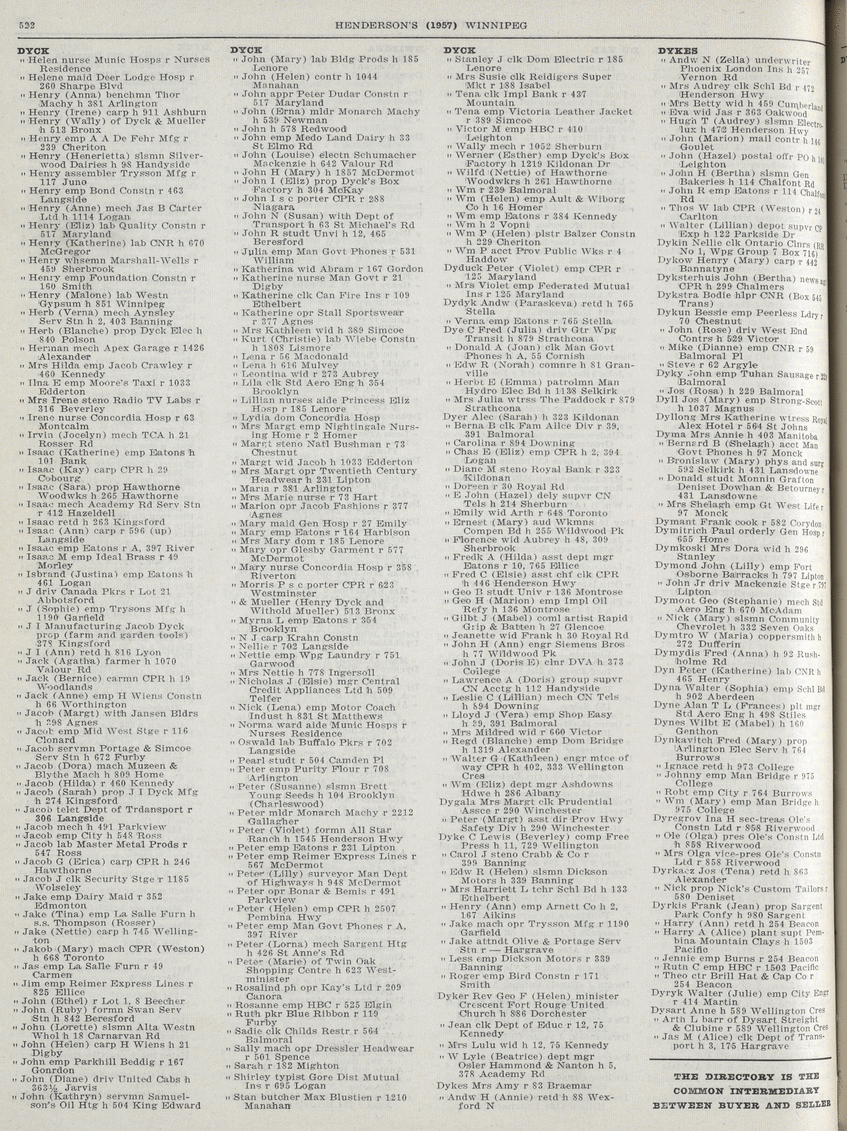 522
HENDERSON'S (1957) WINNIPEG
DYCK
" Helen nurse Munic Hosps r Nurses
Residence
" Helene maid Deer Lodge Hosp r
260 Sharpe Blvd
" Henry (Anna) benchmn Thor
Machy h 381 Arlington
" Henry (Irene) carp h 911 Ashburn
" Henry (Wally) of Dyck & Mueller
h 513 Bronx
" Henry emp A A De Fehr Mfg r
239 Cheriton
" Henry (Henrietta) slsmn Silver-
wood Dairies h 98 Handyside
" Henry assembler Trysson Mfg r
117 Juno
" Henry emp Bond Constn r 463
Langside
" Henry (Anne) mech Jas B Carter
Ltd h 1114 Logan
" Henry (Eliz) lab Quality Constn r
517 Maryland
" Henry (Katherine) lab CNR h 670
McGregor
" Henry whsemn Marshall-Wells r
459 Sherbrook
" Henry emp Foundation Constn r
160 Smith
" Henry (Malone) lab Westn
Gypsum h 851 Winnipeg
" Herb (Verna) mech Aynsley
Serv Stn h 2, 403 Banning
" Herb (Blanche) prop Dyck Elec h
840 Polson
" Herman mech Apex Garage r 1426
Alexander
" Mrs Hilda emp Jacob Crawley r
460 Kennedy
" Ilna E emp Moore's Taxi r 1033
Edderton
" Mrs Irene steno Radio TV Labs r
316 Beverley
" Irene nurse Concordia Hosp r 63
Montcalm
" Irvin (Jocelyn) mech TCA h 21
Rosser Rd
" Isaac (Katherine) emp Eatons h
101 Bank
" Isaac (Kay) carp CPR h 29
Cobourg
" Isaac (Sara) prop Hawthorne
Woodwks h 265 Hawthorne
" Isaac mech Academy Rd Serv Stn
r 412 Hazeldell
" Isaac retd h 263 Kingsford
" Isaac (Ann) carp r 596 (up)
Langside
" Isaac emp Eatons r A, 397 River
" Isaac M emp Ideal Brass r 49
Morley
" Isbrand (Justina) emp Eatons h
461 Logan
" J driv Canada Pkrs r Lot 21
Abbotsford
" J (Sophie) emp Trysons Mfg h
1190 Garfield
" J I Manufacturing Jacob Dyck
prop (farm and garden tools)
278 Kingsford
" J I (Ann) retd h 816 Lyon
" Jack (Agatha) farmer h 1070
Valour Rd
" Jack (Bernice) carmn CPR h 19
Woodlands
" Jack (Anne) emp H Wiens Constn
h 66 Worthington
" Jacob (Margt) with Jansen Bldrs
h 298 Agnes
" Jacob emp Mid West Stge r 116
Clonard
" Jacob servmn Portage & Simcoe
Serv Stn h 672 Furby
" Jacob (Dora) mach Muzeen &
Blythe Mach h 809 Home
" Jacob (Hilda) r 460 Kennedy
" Jacob (Sarah) prop J I Dyck Mfg
h 274 Kingsford
" Jacob telet Dept of Trdansport r
306 Langside
" Jacob mech h 491 Parkview
" Jacob emp City h 548 Ross
" Jacob lab Master Metal Prods r
547 Ross
" Jacob G (Erica) carp CPR h 246
Hawthorne
" Jacob J clk Security Stge r 1185
Wolseley
" Jake emp Dairy Maid r 352
Edmonton
" Jake (Tina) emp La Salle Furn h
s.s. Thompson (Rosser)
" Jake (Nettie) carp h 745 Welling-
ton
" Jakob (Mary) mach CPR (Weston)
h 668 Toronto
" Jas emp La Salle Furn r 49
Carmen
" Jim emp Reimer Express Lines r
825 Ellice
" John (Ethel) r Lot 1, 8 Beecher
" John (Ruby) formn Swan Serv
Stn h 842 Beresford
" John (Lorette) slsmn Alta Westn
Whol h 18 Carnarvan Rd
" John (Helen) carp H Wiens h 21
Digby
" John emp Parkhill Bedding r 167
Gonrdon
" John (Diane) driv United Cabs h
363½ Jarvis
" John (Kathryn) servmn Samuel-
son's Oil Htg h 504 King Edward
DYCK
" John (Mary) lab Bldg Prods h 185
Lenore
" John (Helen) contr h 1044
Manahan
" John appr Peter Dudar Constn r
517 Maryland
" John (Erna) mldr Monarch Machy
h 539 Newman
" John h 578 Redwood
" John emp Medo Land Dairy h 33
St Elmo Rd
" John (Louise) electn Schumacher
Mackenzie h 642 Valour Rd
" John H (Mary) h 1857 McDermot
" John I (Eliz) prop Dyck's Box
Factory h 304 McKay
" John I s c porter CPR r 288
Niagara
" John N (Susan) with Dept of
Transport h 63 St Michael's Rd
" John R studt Unvi h 12, 465
Beresford
" Julia emp Man Govt Phones r 531
William
" Katherina wid Abram r 167 Gordon
" Katherine nurse Man Govt r 21
Digby
" Katherine clk Can Fire Ins r 109
Ethelbert
" Katherine opr Stall Sportswear
r 377 Agnes
" Mrs Kathleen wid h 389 Simcoe
" Kurt (Christie) lab Wiebe Constn
h 1808 Lismore
" Lena r 56 Macdonald
" Lena h 616 Mulvey
" Leontina wid r 273 Aubrey
" Lila clk Std Aero Eng h 354
Brooklyn
" Lillian nurses aide Princess Eliz
Hosp r 185 Lenore
" Lydia dom Concordia Hosp
" Mrs Margt emp Nightingale Nurs-
ing Home r 2 Homer
" Margt steno Natl Bushman r 73
Chestnut
" Margt wid Jacob h 1033 Edderton
" Mrs Margt opr Twentieth Century
Headwear h 231 Lipton
" Maria r 381 Arlington
" Mrs Marie nurse r 73 Hart
" Marion opr Jacob Fashions r 377
Agnes
" Mary maid Gen Hosp r 27 Emily
" Mary emp Eatons r 164 Harbison
" Mrs Mary dom r 185 Lenore
" Mary opr Glesby Garment r 577
McDermot
" Mary nurse Concordia Hosp r 358
Riverton
" Morris P s c porter CPR r 623
Westminster
" & Mueller (Henry Dyck and
Withold Mueller) 513 Bronx
" Myrna L emp Eatons r 354
Brooklyn
" N J carp Krahn Constn
" Nellie r 702 Langside
" Nettie emp Wpg Laundry r 751
Garwood
" Mrs Nettie h 778 Ingersoll
" Nicholas J (Elsie) mgr Central
Credit Appliances Ltd h 509
Telfer
" Nick (Lena) emp Motor Coach
Indust h 831 St Matthews
" Norma ward aide Munic Hosps r
Nurses Residence
" Oswald lab Buffalo Pkrs r 702
Langside
" Pearl studt r 504 Camden Pl
" Peter emp Purity Flour r 708
Arlington
" Peter (Susanne) slsmn Brett
Young Seeds h 104 Brooklyn
(Charleswood)
" Peter mldr Monarch Machy r 2212
Gallagher
" Peter (Violet) formn All Star
Ranch h 1545 Henderson Hwy
" Peter emp Eatons r 231 Lipton
" Peter emp Reimer Express Lines r
567 McDermot
" Peter (Lilly) surveyor Man Dept
of Highways h 948 McDermot
" Peter opr Bonar & Bemis r 491
Parkview
" Peter (Helen) emp CPR h 2507
Pembina Hwy
" Peter emp Man Govt Phones r A,
397 River
" Peter (Lorna) mech Sargent Htg
h 426 St Anne's Rd
" Peter (Marie) of Twin Oak
Shopping Centre h 623 West-
minister
" Rosalind ph opr Kay's Ltd r 209
Canora
" Rosanne emp HBC r 525 Elgin
" Ruth pkr Blue Ribbon r 119
Furby
" Sadie clk Childs Restr r 564
Balmoral
" Sally mach opr Dressler Headwear
r 501 Spence
" Sarah r 182 Mighton
" Shirley typist Gore Dist Mutual
Ins r 695 Logan
" Stan butcher Max Blustien r 1210
Manahan
DYCK
" Stanley J clk Dom Electric r 185
Lenore
" Mrs Susie clk Reidigers Super
Mkt r 188 Isabel
" Tena clk Impl Bank r 437
Mountain
" Tena emp Victoria Leather Jacket
r 389 Simcoe
" Victor M emp HBC r 410
Leighton
" Wally mech r 1052 Sherburn
" Werner (Esther) emp Dyck's Box
Factory h 1219 Kildonan Dr
" Wilfd (Nettie) of Hawthorne
Woodwkrs h 261 Hawthorne
" Wm r 239 Balmoral
" Wm (Helen) emp Ault & Wiborg
Co h 16 Homer
" Wm emp Eatons r 384 Kennedy
" Wm h 2 Vopni
" Wm P (Helen) plstr Balzer Constn
h 229 Cheriton
" Wm P acct Prov Public Wks r 4
Haddow
Dyduck Peter (Violet) emp CPR r
125 Maryland
" Mrs Violet emp Federated Mutual
Ins r 125 Maryland
Dydyk Andw (Paraskeva) retd h 765
Stella
" Verna emp Eatons r 765 Stella
Dye C Fred (Julia) driv Gtr Wpg
Transit h 879 Strathcona
" Donald A (Joan) clk Man Govt
Phones h A, 55 Cornish
" Edw R (Norah) comnre h 81 Gran-
ville
" Herbt E (Emma) patrolmn Man
Hydro Elec Bd h 1138 Selkirk
" Mrs Julia wtrss The Paddock r 879
Strathcona
Dyer Alec (Sarah) h 323 Kildonan
" Berna B clk Fam Allce Div r 39,
391 Balmoral
" Carolina r 894 Downing
" Chas E (Eliz) emp CPR h 2, 394
Logan
" Diane M steno Royal Bank r 323
Kildonan
" Doreen r 30 Royal Rd
" E John (Hazel) dely supvr CN
Tels h 214 Sherburn
" Emily wid Arth r 648 Toronto
" Ernest (Mary) aud Wkmns
Compen Bd h 255 Wildwood Pk
" Florence wid Aubrey h 48, 309
Sherbrook
" Fredk A (Hilda) asst dept mgr
Eatons r 10, 765 Ellice
" Fred C (Elsie) asst chf clk CPR
h 446 Henderson Hwy
" Geo B studt Univ r 136 Montrose
" Geo H (Marion) emp Impl Oil
Refy h 136 Montrose
" Gilbt J (Mabel) coml artist Rapid
Grip & Batten h 27 Glencoe
" Jeanette wid Frank h 30 Royal Rd
" John H (Ann) engr Siemens Bros
h 77 Wildwood Pk
" John J (Doris E) clnr DVA h 373
College
" Lawrence A (Doris) group supvr
CN Acctg h 112 Handyside
" Leslie C (Lillian) mech CN Tels
h 894 Downing
" Lloyd J (Vera) emp Shop Easy
h 29, 391 Balmoral
" Mrs Mildred wid r 660 Victor
" Regd (Blanche) emp Dom Bridge
h 1319 Alexander
" Walter G (Kathleen) engr mtce of
way CPR h 402, 333 Wellington
Cres
" Wm (Eliz) dept mgr Ashdowns
Hdwe h 286 Albany
Dygala Mrs Margt clk Prudential
Assce r 290 Winchester
" Peter (Margt) asst dir Prov Hwy
Safety Div h 290 Winchester
Dyke C Lewis (Beverley) comp Free
Press h 11, 729 Wellington
" Carol J steno Crabb & Co r
399 Banning
" Edw R (Helen) slsmn Dickson
Motors h 339 Banning
" Mrs Harriett L tchr Schl Bd h 133
Ethelbert
" Henry (Ann) emp Arnett Co h 2,
167 Aikins
" Jake mach opr Trysson Mfg r 1190
Garfield
" Jake attndt Olive & Portage Serv
Stn r — Hargrave
" Less emp Dickson Motors r 339
Banning
" Roger emp Bird Constn r 171
Smith
Dyker Rev Geo F (Helen) minister
Crescent Fort Rouge United
Church h 886 Dorchester
" Jean clk Dept of Educ r 12, 75
Kennedy
" Mrs Lulu wid h 12, 75 Kennedy
" W Lyle (Beatrice) dept mgr
Osler Hammond & Nanton h 5,
378 Academy Rd
Dykes Mrs Amy r 83 Braemar
" Andw H (Annie) retd h 88 Wex-
ford N
DYKES
" Andw N (Zella) underwriter
Phoenix London Ins h 257
Vernon Rd
" Mrs Audrey clk Schl Bd r 472
Henderson Hwy
" Mrs Betty wid h 459 Cumberland
" Eva wid Jas r 363 Oakwood
" Hugh T (Audrey) slsmn Electro-
lux h 472 Henderson Hwy
" John (Marion) mail contr h 146
Goulet
" John (Hazel) postal offr PO h
Leighton
" John H (Bertha) slsmn Gen
Bakeries h 114 Chalfont Rd
" John R emp Eatons r 114 Chalfont
Rd
" Thos W lab CPR (Weston) r 24
Carlton
" Walter (Lillian) depot supvr CP
Exp h 122 Parkside Dr
Dykin Nellie clk Ontario Clnrs (RR
No 1, Wpg Group 7 Box 716)
Dykow Henry (Mary) carp r 442
Bannatyne
Dyksterhuis John (Bertha) news agt
CPR h 299 Chalmers
Dykstra Bodie hlpr CNR (Box 545
Trans)
Dykun Bessie emp Peerless Ldry r
70 Chestnut
" John (Rose) driv West End
Contrs h 529 Victor
" Mike (Dianne) emp CNR r 59
Balmoral Pl
" Steve r 62 Argyle
Dyky John emp Tuhan Sausage r 229
Balmoral
" Jos (Rosa) h 229 Balmoral
Dyll Jos (Mary) emp Strong-Scott
h 1037 Magnus
Dyllong Mrs Katherine wtress Royal
Alex Hotel r 564 St Johns
Dyma Mrs Annie h 403 Manitoba
" Bernard B (Shelagh) acct Man
Govt Phones h 97 Monck
" Bronislaw (Mary) phys and surg
592 Selkirk h 431 Lansdowne
" Donald studt Monnin Grafton
Deniset Dowhan & Betourney r
431 Lansdowne
" Mrs Shelagh emp Gt West Life r
97 Monck
Dymant Frank cook r 582 Corydon
Dymitrich Paul orderly Gen Hosp r
655 Home
Dymkoski Mrs Dora wid h 296
Stanley
Dymond John (Lilly) emp Fort
Osborne Barracks h 797 Lipton
" John Jr driv Mackenzie Stge r 797
Lipton
Dymont Geo (Stephanie) mech Std
Aero Eng h 670 McAdam
" Nick (Mary) slsmn Community
Chevrolet h 332 Seven Oaks
Dymtro W (Maria) coppersmith h
272 Dufferin
Dymydis Fred (Anna) h 92 Rush-
holme Rd
Dyn Peter (Katherine) lab CNR h
465 Henry
Dyna Walter (Sophia) emp Schl Bd
h 902 Aberdeen
Dyne Alan T L (Frances) plt mgr
Std Aero Eng h 498 Stiles
Dynes Wilbt E (Mabel) h 160
Genthon
Dynkavitch Fred (Mary) prop
Arlington Elec Serv h 764
Burrows
" Ignace retd h 973 College
" Johnny emp Man Bridge r 975
College
" Robt emp City r 764 Burrows
" Wm (Mary) emp Man Bridge h
975 College
Dyregrov Ina H sec-treas Ole's
Constn Ltd r 858 Riverwood
" Ole (Olga) pres Ole's Constn Ltd
h 858 Riverwood
" Mrs Olga vice-pres Ole's Constn
Ltd r 858 Riverwood
Dyrkacz Jos (Tena) retd h 863
Alexander
" Nick prop Nick's Custom Tailors r
580 Deniset
Dyrkis Frank (Jean) prop Sargent
Park Confy h 980 Sargent
" Harry (Ann) retd h 254 Beacon
" Harry A (Alice) plant supt Pem-
bina Mountain Clays h 1503
Pacific
" Jennie emp Burns r 254 Beacon
" Rutn C emp HBC r 1503 Pacific
" Theo ctr Brill Hat & Cap Co r
254 Beacon
Dyryk Walter (Julie) emp City Engr
r 414 Martin
Dysart Anne h 589 Wellington Cres
" Arth L barr of Dysart Streight
& Clubine r 589 Wellington Cres
" Jas M (Alice) clk Dept of Trans-
port h 3, 175 Hargrave
THE DIRECTORY IS THE
COMMON INTERMEDIARY
BETWEEN BUYER AND SELLER